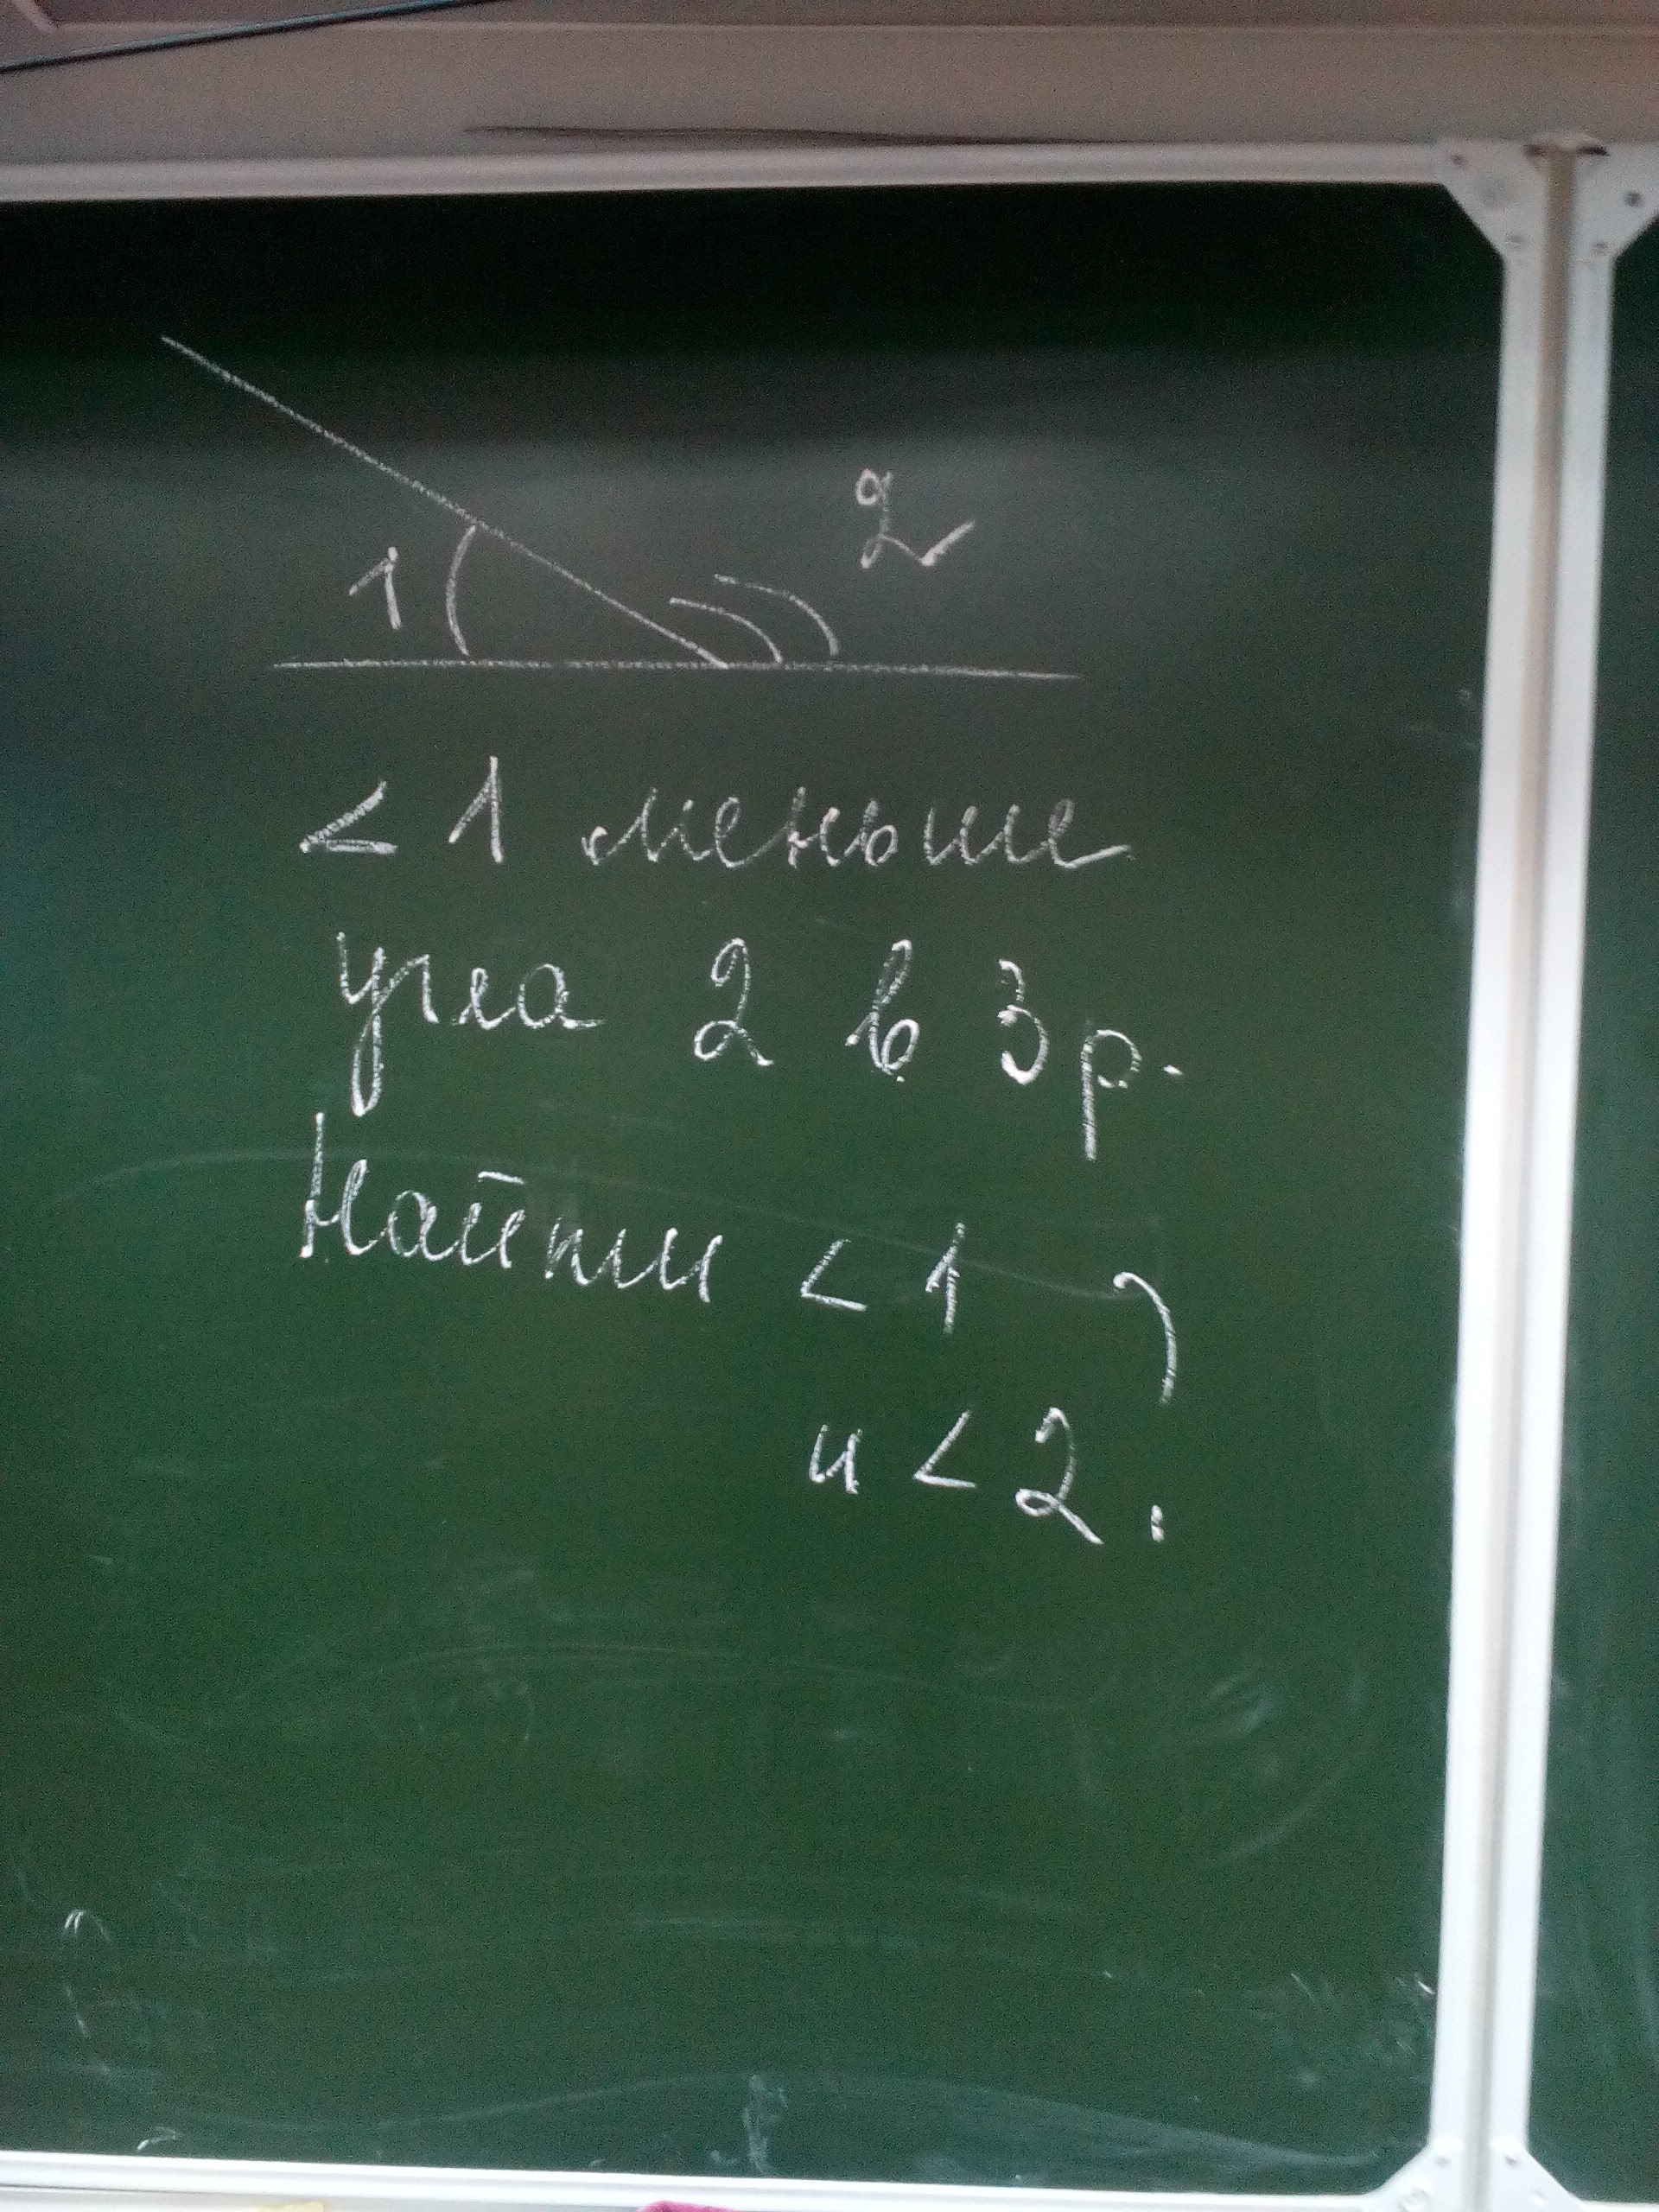 1 2
< 1 меньше
угла 2 в 3 р.
Найти < 1
и < 2 ?